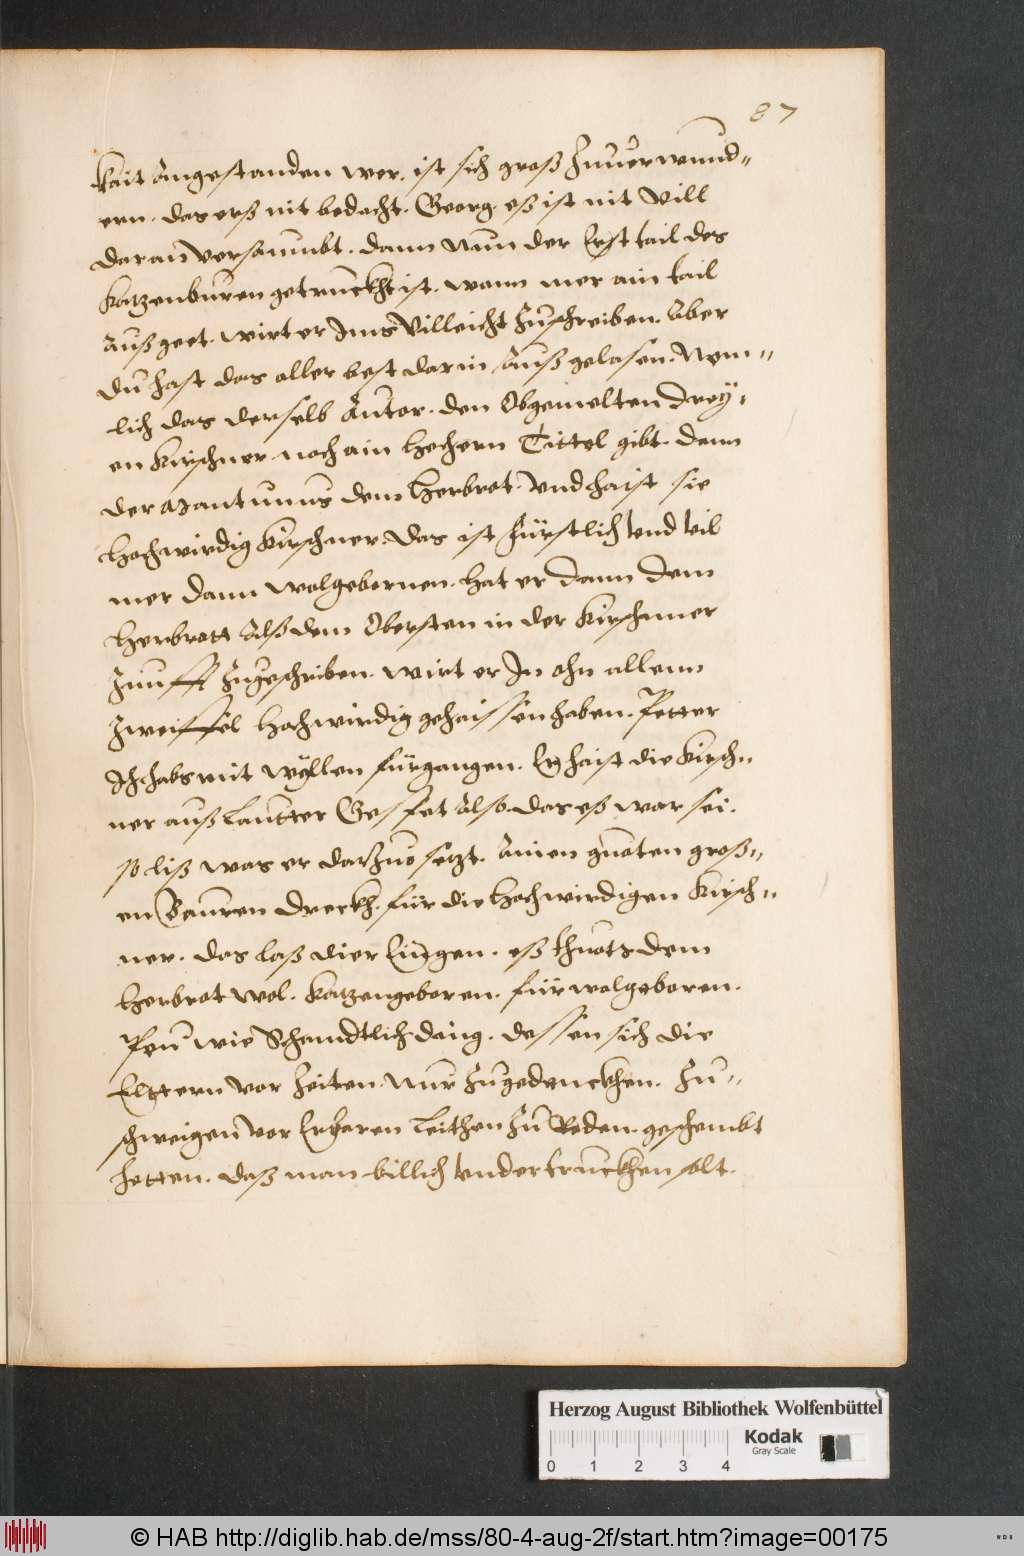 87
kait Angestanden wer. ist sich groß Zuuerwund„
ern. das erß nit bedacht. Georg. eß ist nit Vill
daran versaumbt. dann Nun der Erst tail des
Katzenburen getruckht ist. wann mer ain tail
Auß geet. wirt er Ims Villeicht Zuschreiben. Aber
du hast das aller best darin Auß gelasen. Nem„
lich das derselb Autor. den Obgemelten drey„
en Kirschner noch ain Hechern Tittel gibt. dann
der Mantuanus dem Herbrot. Vnd haist sie
Hochwirdig Kirschner. das ist Fürstlich Vnd Vil
mer dann wolgebornen. hat er dann dem
Herbrott Alß dem Obersten in der Kirschner
Zunfft Zugeschriben. wirt er In ohn allenn
Zweiffel Hochwirdig gehaissen haben. Petter
Ich habs mit wyllen fürgangen. Er haist die Kirsch„
ner auß Lautter Gespet Also. das eß war sei.
so liß was er darZuo setzt. Ainen guoten groß„
en Bauren dreckh. für die Hochwirdigen Kirsch„
ner. das laß dier Lingen. eß thuots dem
Herbrot wol. Katzengeboren. für wolgeboren.
Pfui wie Schandtlich ding. dessen sich die
Elttern vor Zeiten Nur Zugedenckhen. Zu„
schweigen vor Erbaren Leithen Zu Reden. geschembt
hetten. daß man billich Vndertruckhen solt.
Herzog August Bibliothek Wolfenbüttel
Kodak
Gray Scale
0 1 2 3 4
© HAB http://diglib.hab.de/mss/80-4-aug-2f/start.htm?image=00175